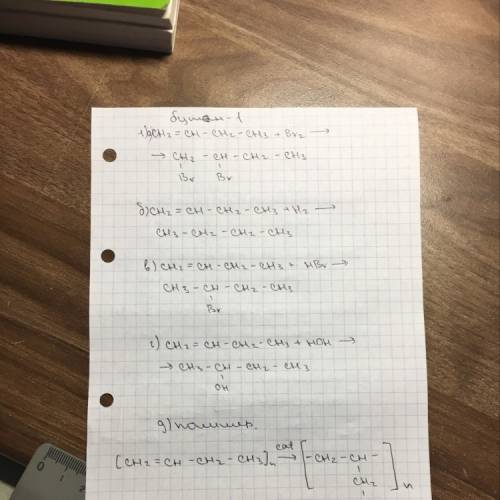 бутен-1
1) а) CH2 = CH - CH2 - CH3 + Br2 →
→ CH2 - CH - CH2 - CH3
Br Br
б) CH2 = CH - CH2 - CH3 + H2 →
CH3 - CH2 - CH2 - CH3
в) CH2 = CH - CH2 - CH3 + HBr →
CH3 - CH - CH2 - CH3
Br
г) CH2 = CH - CH2 - CH3 + HOH →
→ CH3 - CH - CH2 - CH3
OH
д) полимер.
[CH2 = CH - CH2 - CH3]n cat → [- CH2 - CH -
CH2 ]n
0 1 2 3